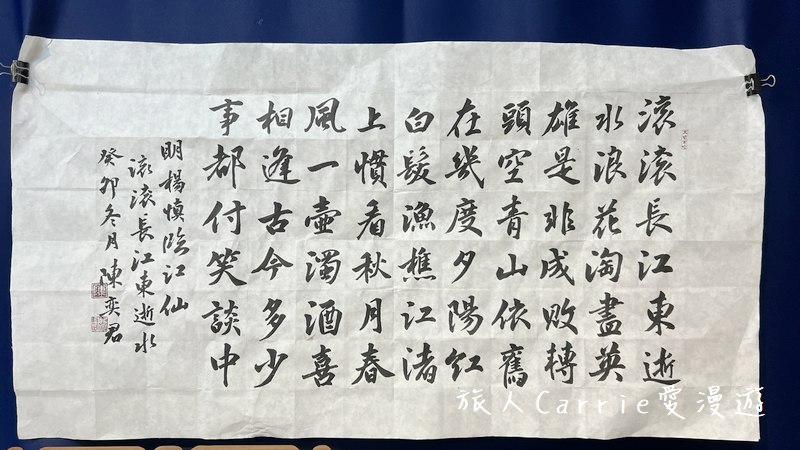 滾滾長江東逝
水浪花淘盡英
雄是非成敗轉
頭空青山依舊
在幾度夕陽紅
白髮漁樵江渚
上慣看秋月春
風一壺濁酒喜
相逢古今多少
事都付笑談中
明楊慎臨江仙
滾滾長江東逝水
癸卯冬月陳奕君
旅人Carrie愛漫遊